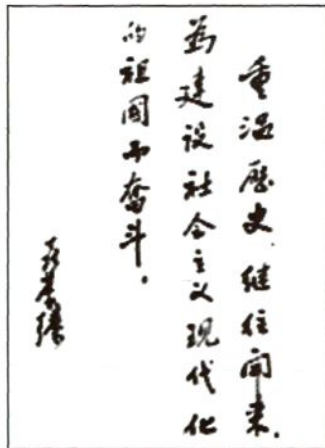 重温歷史、继往開来，
為建设社会主义现代化
的祖國而奋斗。